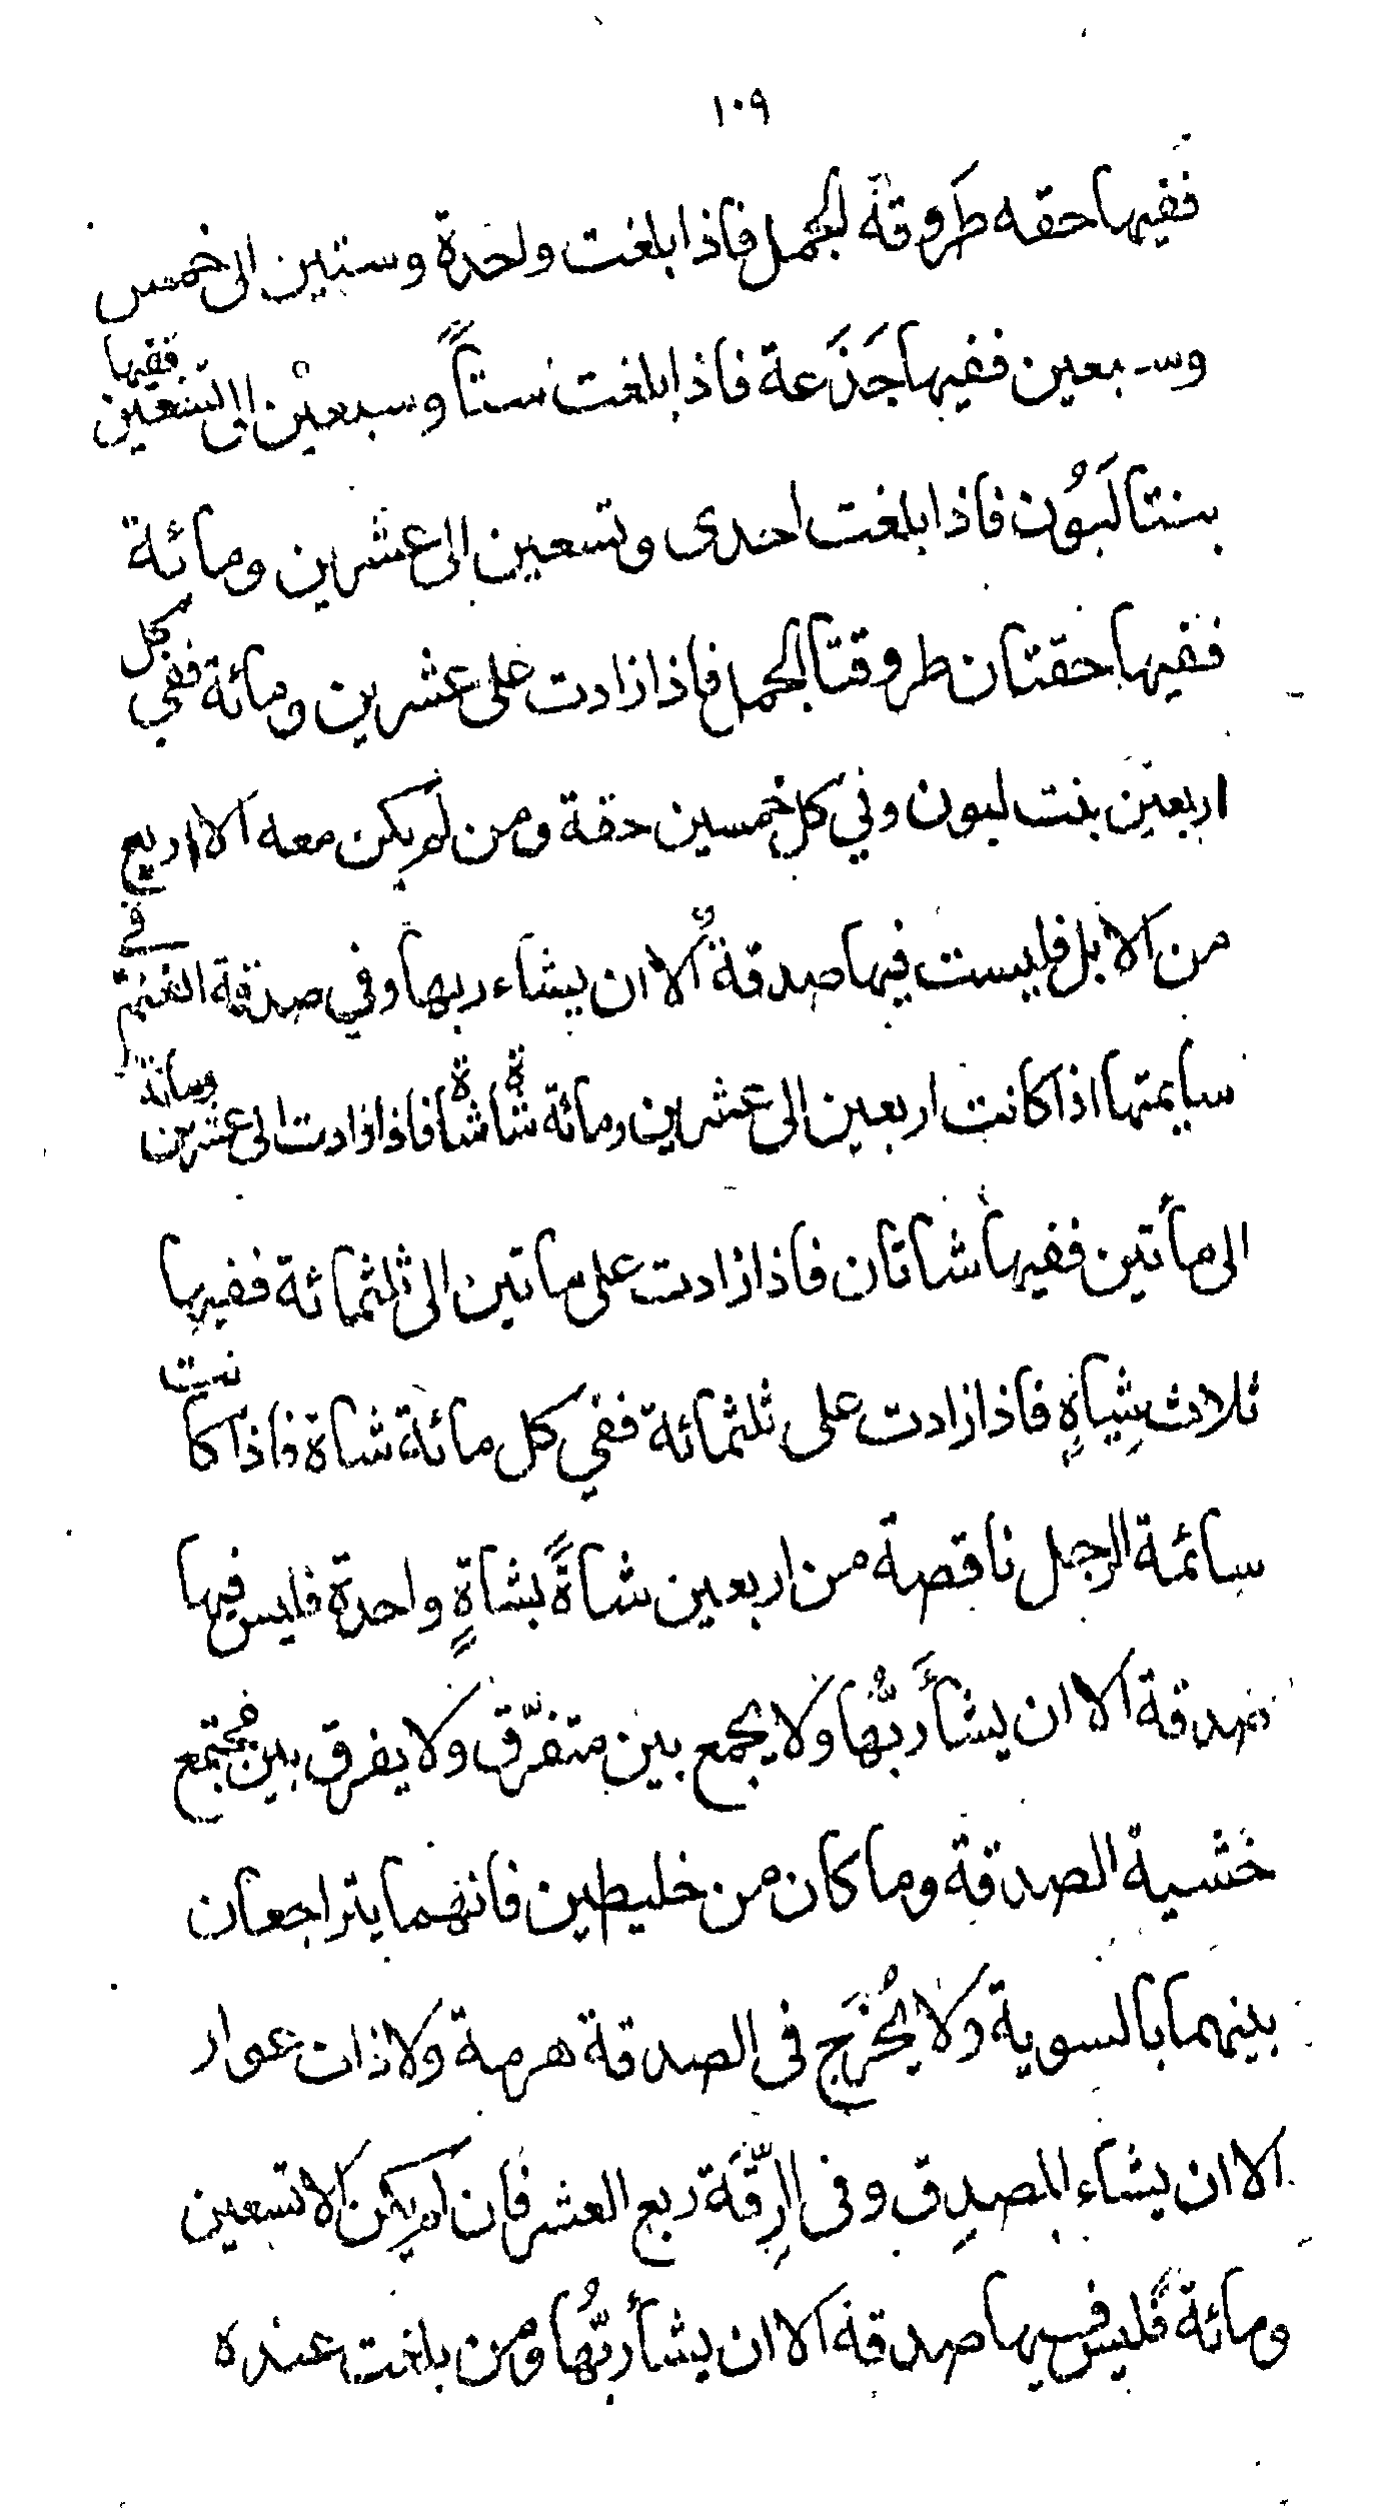 ١٠٩
ففيها حقه طَروقة الجمل فاذا بلغت واحدة وستين الى خمس
وسبعين ففيها جَذَعة فاذا بلغت ستاً وسبعيْن الى التسعين ففيها
بنتا لَبُون فاذا بلغت احدى وتسعين الى عشرين ومائة
ففيها حقتان طروقتا الجمل فاذا زادت على عشرين ومائة ففي كل
اربعين بنت لبون وفي كل خمسين حقة ومن لم يكن معه الا اربع
من الابل فليست فيها صدقةٌ الا ان يشاء ربها وفي صدقة الغنم في
سايمتها اذا كانت اربعين الى عشرين ومائة شاة شاة فاذا زادت الى عشرين ومائة
الى مأتين ففيها شاتان فاذا زادت على ماتين الى ثلثمائة ففيها
ثلاث شِياهٍ فاذا زادت على ثلثمائة ففي كل مائة شاة فاذا كانت
سائمة الرجل ناقصة من اربعين شاةً بشاةٍ واحدة فليس فيها
صدقة الا ان يشأَ ربُّها ولا يجمع بين متفرّق ولا يفرق بين مجتمع
خشية الصدقة وما كان من خليطين فانهما يتراجعان
بينهما بالسوية ولا يُخرَج فى الصدقة هرمة ولا ذات عوار
الا ان يشاء المصدِق وفى الرِّقَة ربع العشر فان لم يكن الا تسعين
ومائة فليس فيها صدقة الا ان يشأ ربُّها ومن بلغت عنده